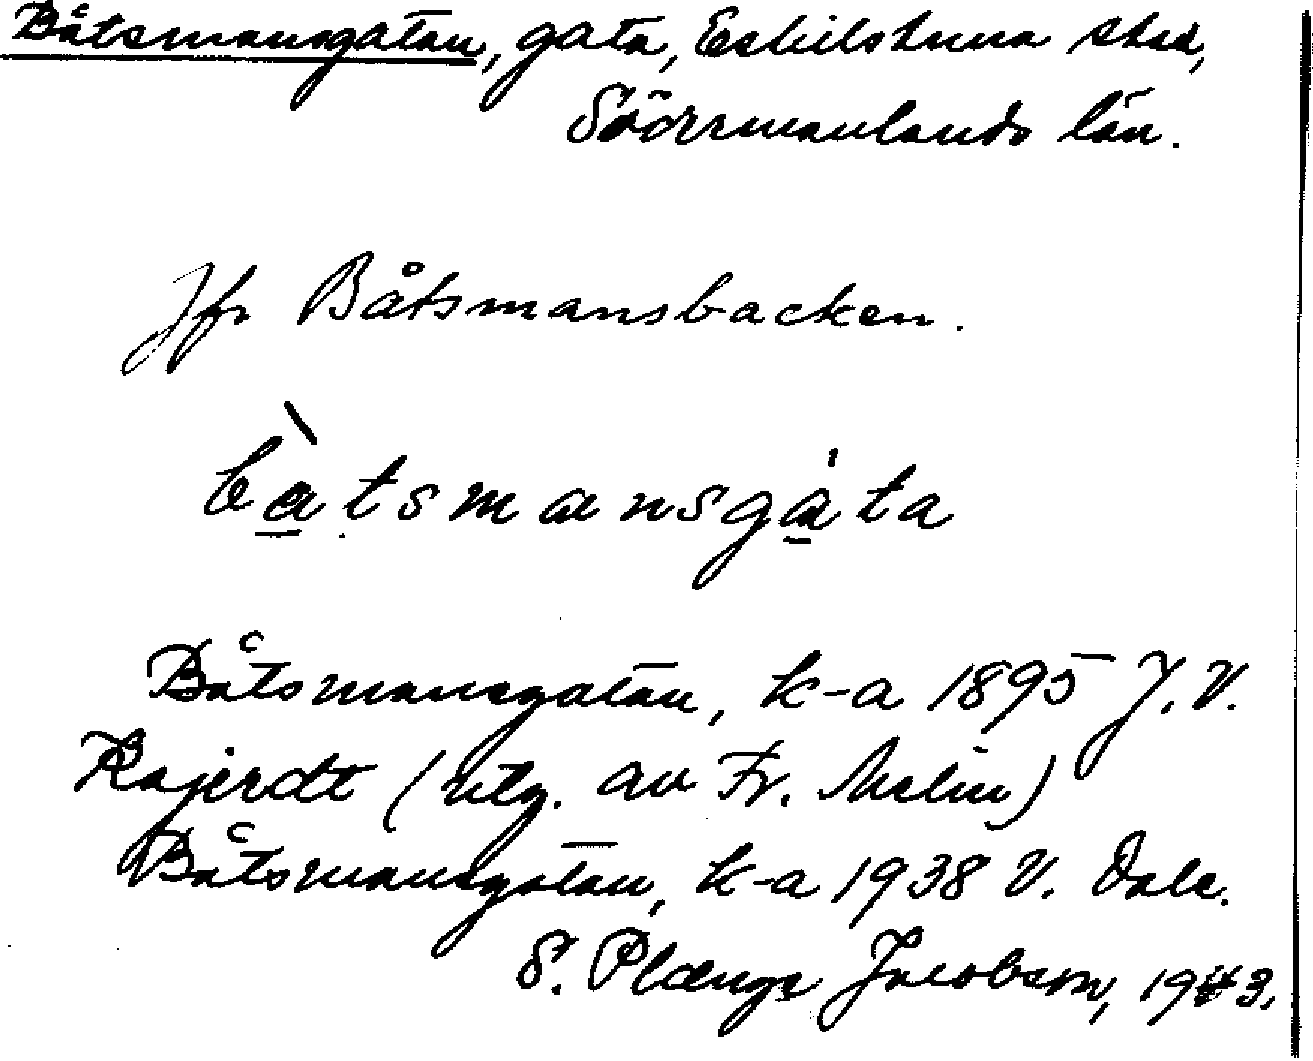 Båtsmansgatan, gata, Eskilstuna stad,
Södermanlands län.
Jfr Båtsmansbacken.
bàtsmansgáta
Båtsmansgatan, k-a 1895 J. V.
(utg. av Fr. Melin)
Båtsmansgatan, k-a 1938 V. Dale.
S. Plænge Jacobson, 1943.